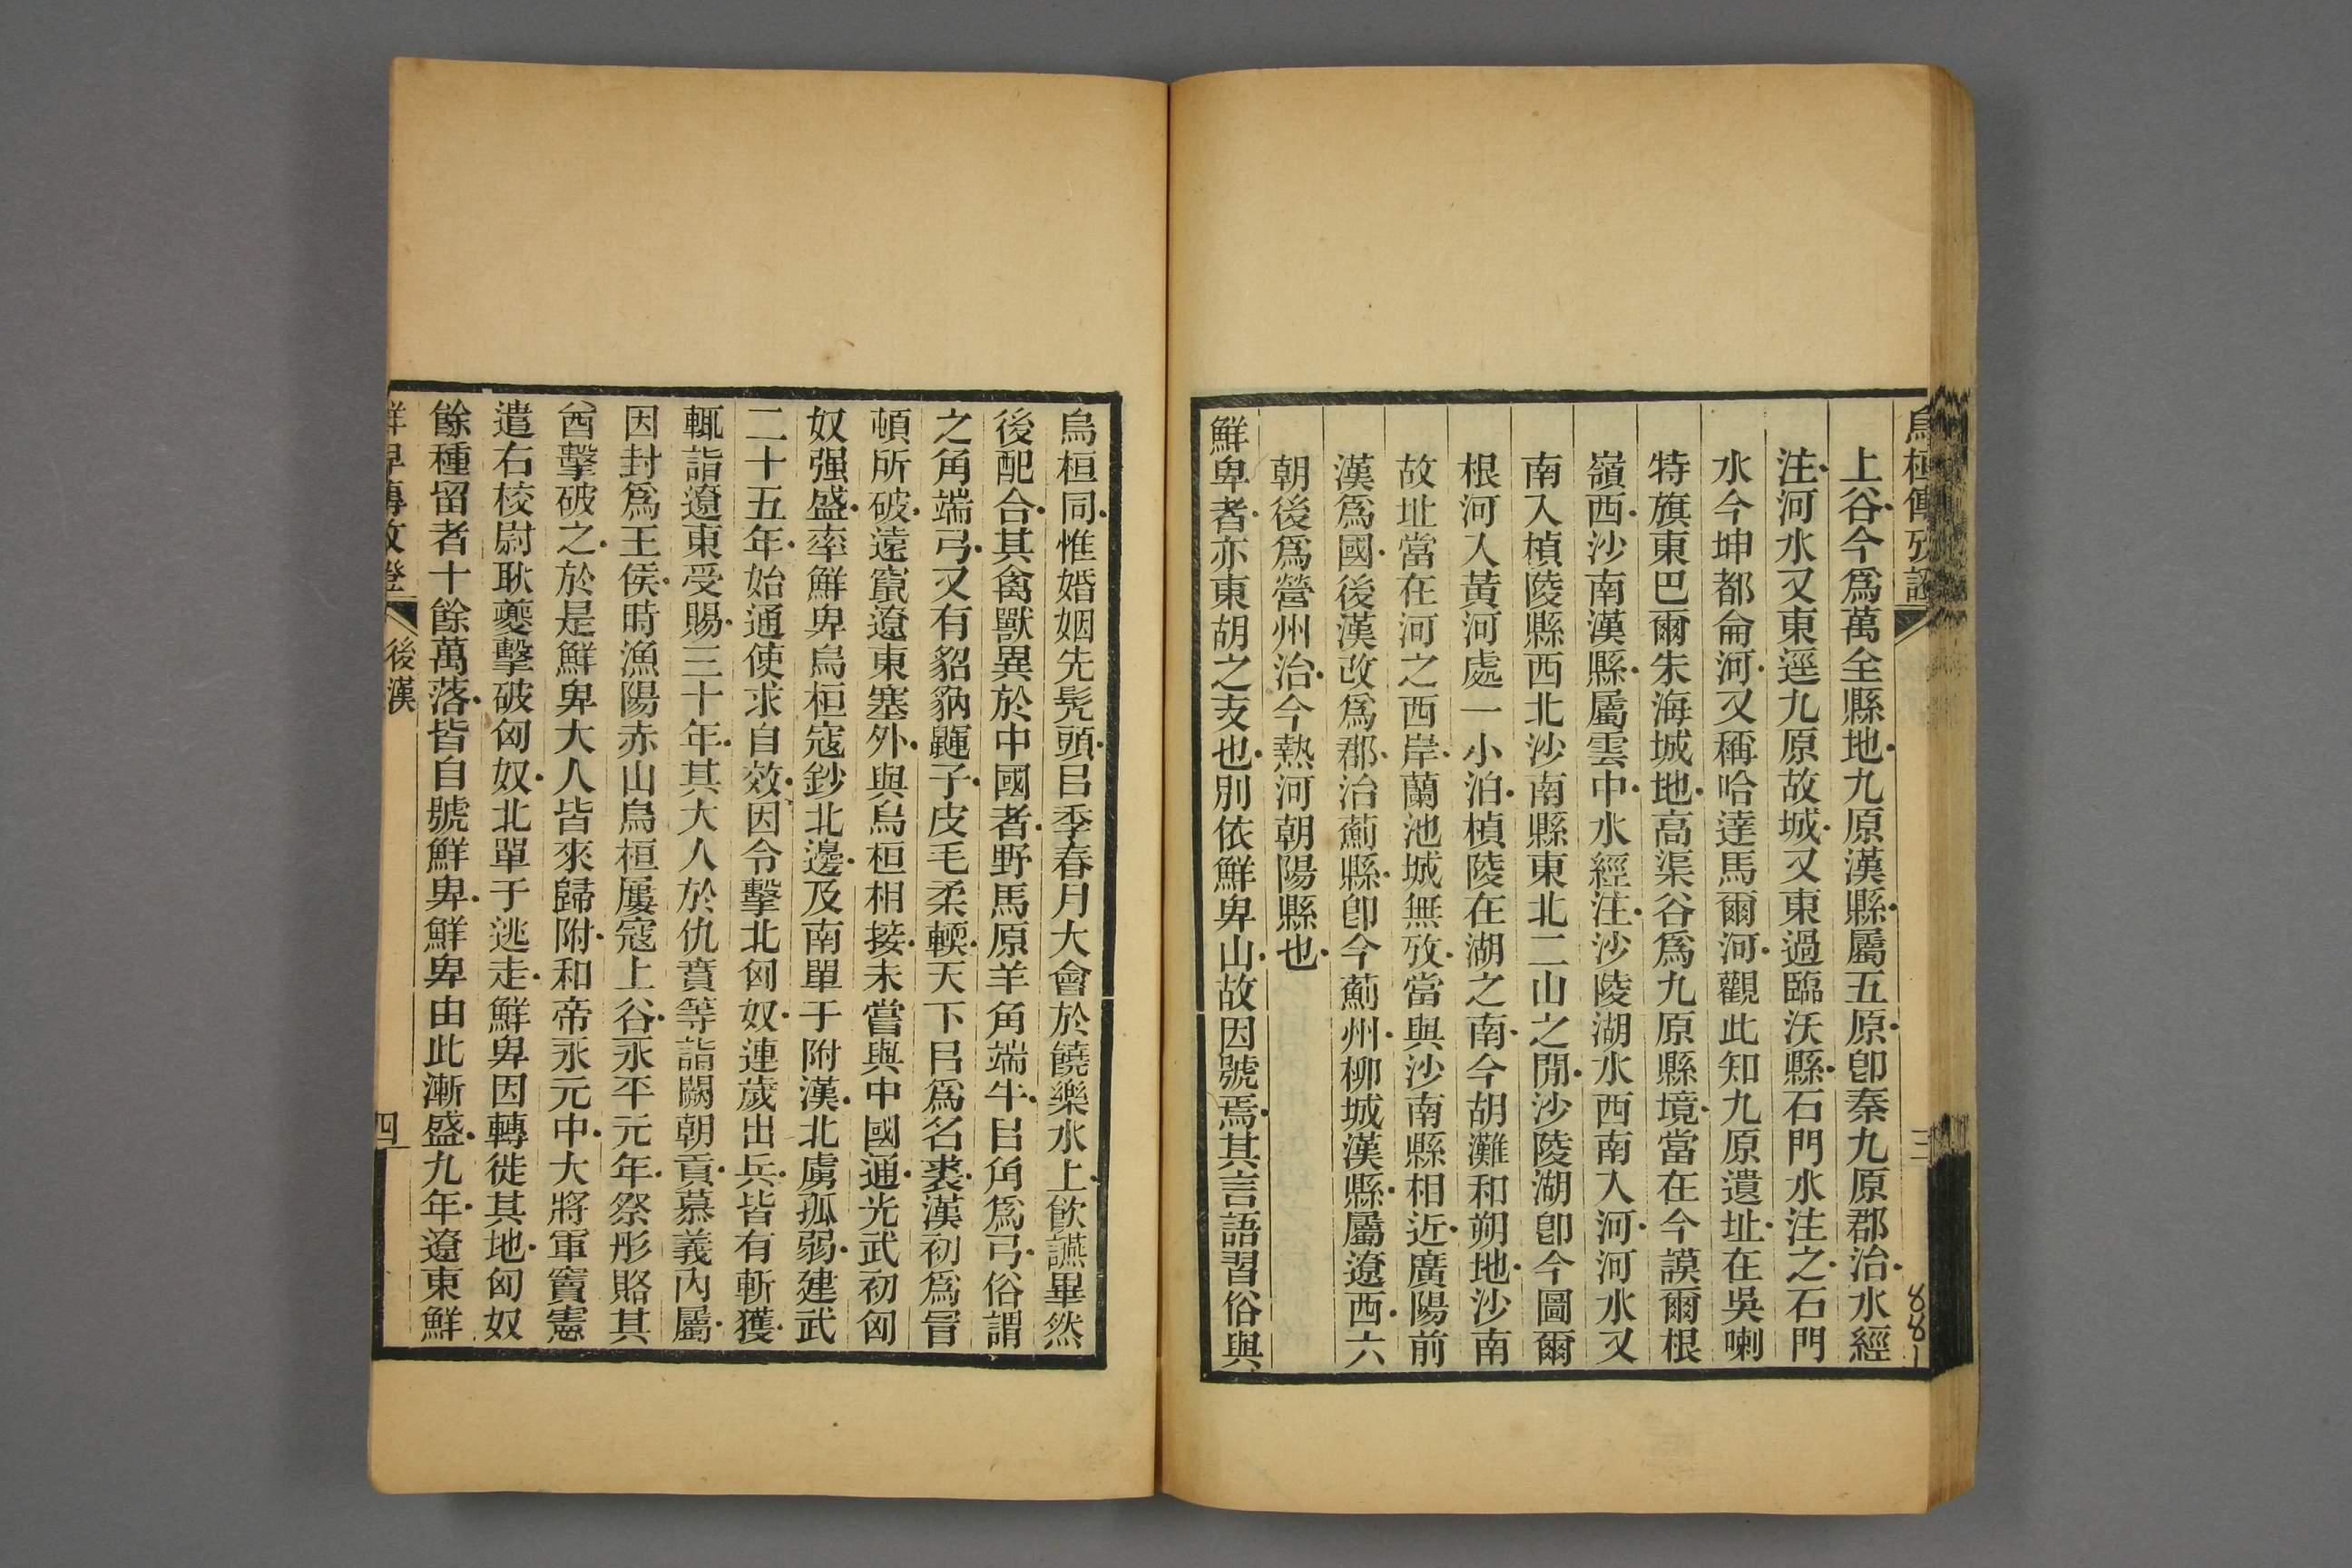 烏桓傳攷證
三
881
上谷今爲萬全縣地九原漢縣屬五原卽秦九原郡治水經
注河水又東逕九原故城又東過臨沃縣石門水注之石門
水今坤都侖河又稱哈達馬爾河觀此知九原遺址在吳喇
特旗東巴爾朱海城地高渠谷爲九原縣境當在今謨爾根
嶺西沙南漢縣屬雲中水經注沙陵湖水西南入河河水又
南入楨陵縣西北沙南縣東北二山之閒沙陵湖卽今圖爾
根河入黃河處一小泊楨陵在湖之南今胡灘和朔地沙南
故址當在河之西岸蘭池城無攷當與沙南縣相近廣陽前
漢爲國後漢改爲郡治薊縣卽今薊州柳城漢縣屬遼西六
朝後爲營州治今熱河朝陽縣也
鮮卑者亦東胡之支也別依鮮卑山故因號焉其言語習俗與
烏桓同惟婚姻先髠頭㠯季春月大會於饒樂水上飮讌畢然
後配合其禽獸異於中國者野馬原羊角端牛㠯角爲弓俗謂
之角端弓又有貂豽鼲子皮毛柔輭天下㠯爲名裘漢初爲冒
頓所破遠竄遼東塞外與烏桓相接未嘗與中國通光武初匈
奴强盛率鮮卑烏桓寇鈔北邊及南單于附漢北虜孤弱建武
二十五年始通使求自效因令擊北匈奴連歲出兵皆有斬獲
輒詣遼東受賜三十年其大人於仇賁等詣闕朝貢慕義內屬
因封爲王侯時漁陽赤山烏桓屢寇上谷永平元年祭肜賂其
酋擊破之於是鮮卑大人皆來歸附和帝永元中大將軍竇憲
遣右校尉耿夔擊破匈奴北單于逃走鮮卑因轉徙其地匈奴
餘種留者十餘萬落皆自號鮮卑鮮卑由此漸盛九年遼東鮮
鮮卑傳攷證
後漢
四